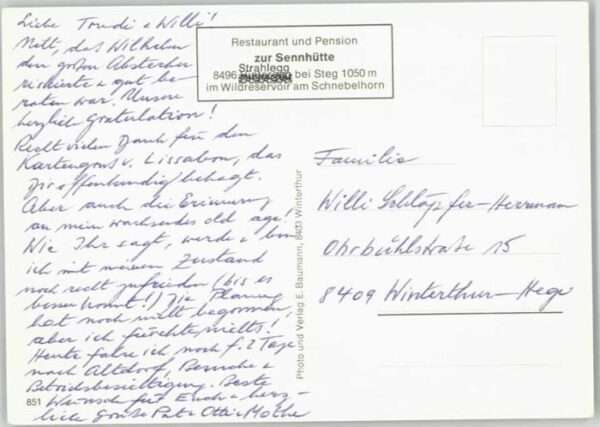 Liebe Trudi + Willi!
Nett, das Wilhelm
den großen Abstecher
riskierte + gut be-
raten war. Unsere
herzlich Gratulation!
Recht vielen Dank für den
Kartengruss v. Lissabon, das
Dir offenkundig behagt.
Aber auch die Erinnerung
an mein wachsendes old age!
Wie Ihr sagt, werde + bin
ich mit meinem Zustand
noch recht zufrieden (bis es
besser kommt!) Die Planung
hat noch nicht begonnen,
aber ich fürchte nichts!
Heute fahre ich noch f. 2 Tage
nach Altdorf, Besuche +
Betriebsbesichtigung. Beste
Wünsche für Euch + herz-
liche Grüße
851
Restaurant und Pension
zur Sennhütte
Strahlegg
8496 bei Steg 1050 m
im Wildreservoir am Schnebelhorn
Photo und Verlag E. Baumann, 8403 Winterthur
Familie
Willi Schläpfer-Herrmann
Ohrbühlstraße 15
8409 Winterthur-Hegi